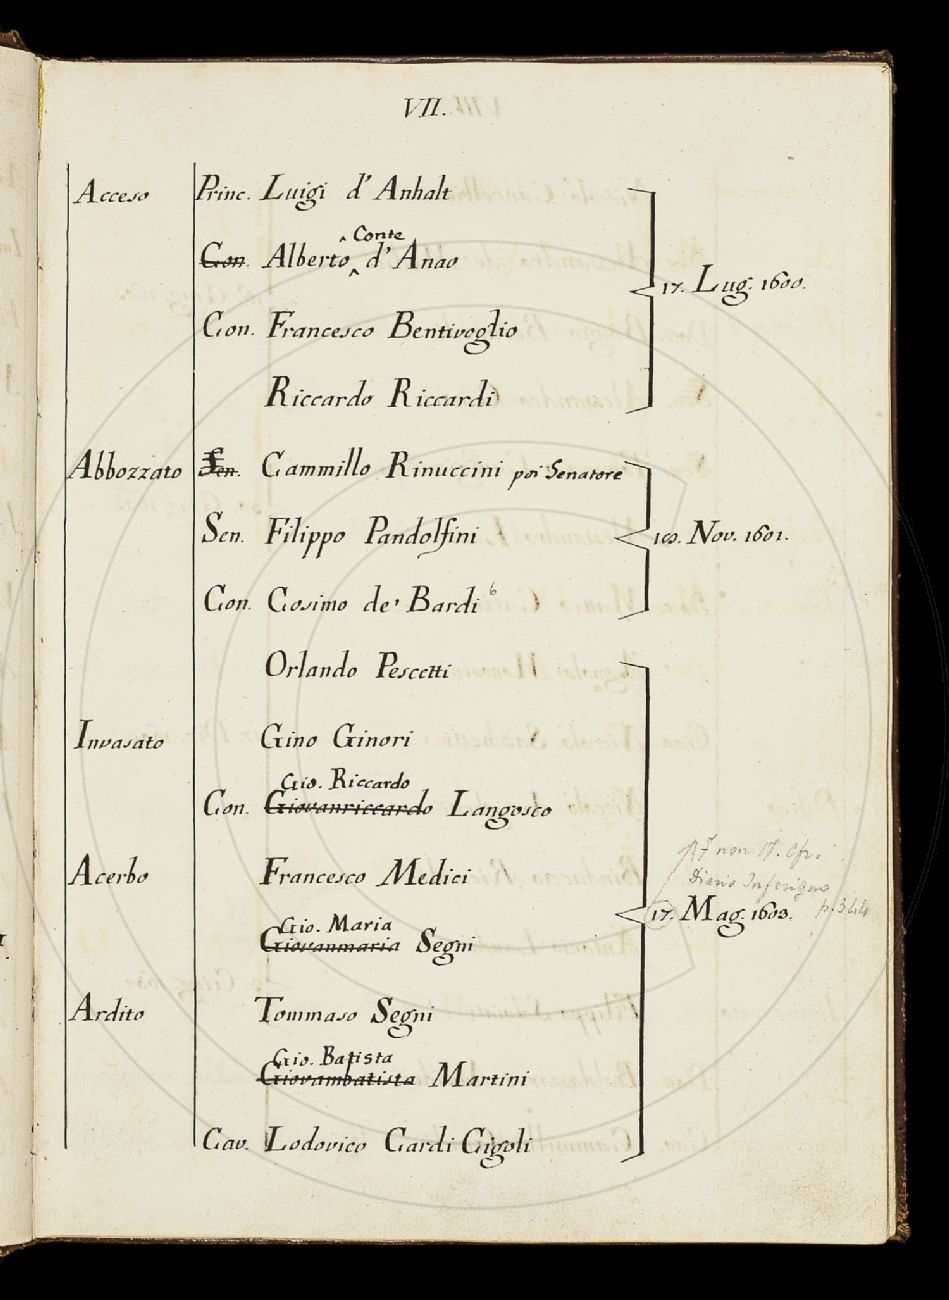 VII.
Acceso Princ. Luigi d' Anhalt
Conte
Con. Alberto d' Anao
17. Lug. 1600.
Con. Francesco Bentivoglio
Riccardo Riccardi
Abbozzato Sen. Cammillo Rinuccini poi Senatore
Sen. Filippo Pandolfini
10. Nov. 1601.
Con. Cosimo de' Bardi 6
Orlando Pescetti
Invasato Gino Ginori
Gio. Riccardo
Con. Giovanriccardo Langosco
17 non 17. Cfr.
Acerbo Francesco Medici
Diario Inferigno
p. 344
17. Mag. 1603.
Gio. Maria
Giovanmaria Segni
Ardito Tommaso Segni
Gio. Batista
Giovambatista Martini
Cav. Lodovico Cardi Cigoli